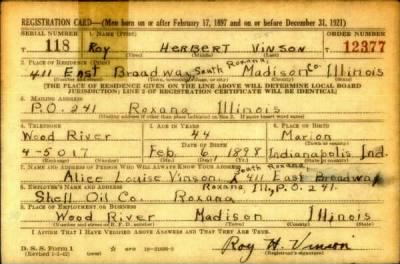 REGISTRATION CARD—(Men born on or after February 17, 1897 and on or before December 31, 1921)
SERIAL NUMBER 1. NAME (Print) ORDER NUMBER
118 Roy Herbert Vinson 12377
(First) (Middle) (Last)
2. PLACE OF RESIDENCE (Print)
411 East Broadway South Roxana, Madison Co. Illinois
(Number and street) (Town, township, village, or city) (County) (State)
[THE PLACE OF RESIDENCE GIVEN ON THE LINE ABOVE WILL DETERMINE LOCAL BOARD
JURISDICTION; LINE 2 OF REGISTRATION CERTIFICATE WILL BE IDENTICAL]
3. MAILING ADDRESS
P.O. 241 Roxana Illinois
[Mailing address if other than place indicated on line 2. If same insert word same]
4. TELEPHONE 5. AGE IN YEARS 6. PLACE OF BIRTH
Wood River 44 Marion
DATE OF BIRTH (Town or county)
4-5017 Feb. 6, 1898 Indianapolis Ind.
(Exchange) (Number) (Mo.) (Day) (Yr.) (State or country)
7. NAME AND ADDRESS OF PERSON WHO WILL ALWAYS KNOW YOUR ADDRESS
Alice Louise Vinson, South Roxana, 411 East Broadway
8. EMPLOYER'S NAME AND ADDRESS Roxana, Ill., P.O. 241.
Shell Oil Co. Roxana
9. PLACE OF EMPLOYMENT OR BUSINESS
Wood River Madison Illinois
(Number and street or R. F. D. number) (Town) (County) (State)
I AFFIRM THAT I HAVE VERIFIED ABOVE ANSWERS AND THAT THEY ARE TRUE.
D. S. S. Form 1
(Revised 1-1-42) (over) Roy H. Vinson
(Registrant's signature)